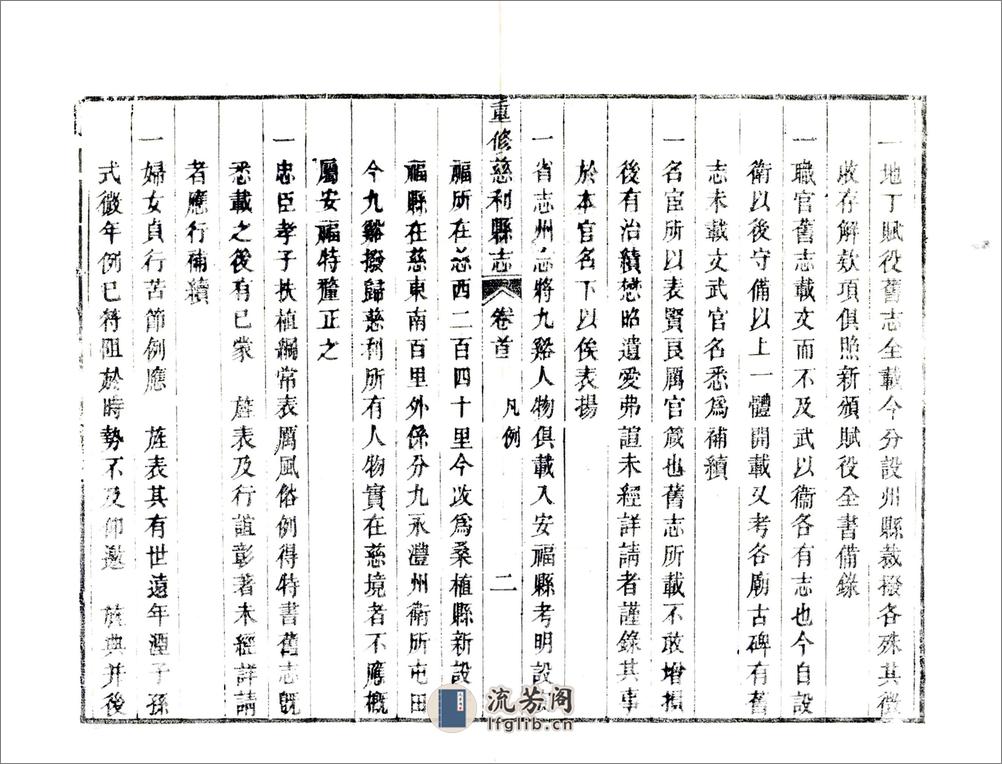 一地丁賦役舊志全載今分設州縣裁撥各殊其徵
收存解欵項俱照新頒賦役全書備錄
一職官舊志載文而不及武以衞各有志也今自設
衛以後守備以上一體開載又考各廟古碑有舊
志未載文武官名悉爲補續
一名宦所以表賢良厲官箴也舊志所載不敢增損
後有治績懋昭遺愛弗諠未經詳請者謹錄其事
於本官名下以俟表揚
重修慈利縣志 卷首 凡例 二
一省志州志將九谿人物俱載入安福縣考明設
福所在慈西二百四十里今改爲桑植縣新設
福縣在慈東南百里外係分九永澧州衛所屯田
今九谿撥歸慈利所有人物實在慈境者不應概
屬安福特釐正之
一忠臣孝子扶植綱常表厲風俗例得特書舊志旣
悉載之後有已蒙 旌表及行誼彰著未經詳請
者應行補續
一婦女貞行苦節例應 旌表其有世遠年湮子孫
式微年例已符阻於時勢不及仰邀 旌典并後
流芳阁
lfglib.cn